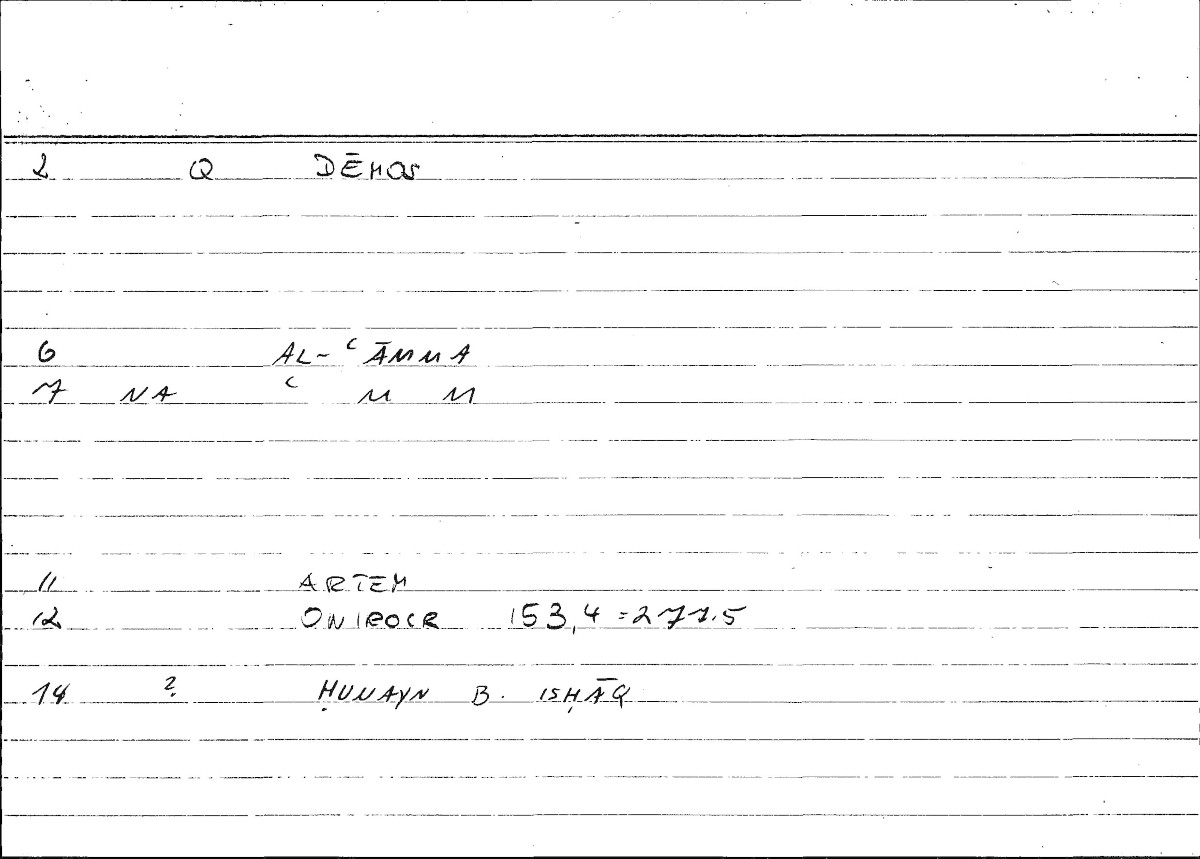 2 Q DĒMOS
6 AL-ʿĀMMA
7 NA ʿ M M
11 ARTEM
12 ONIROCR 153,4 = 271.5
14 ? ḤUNAYN B. ISḤĀQ